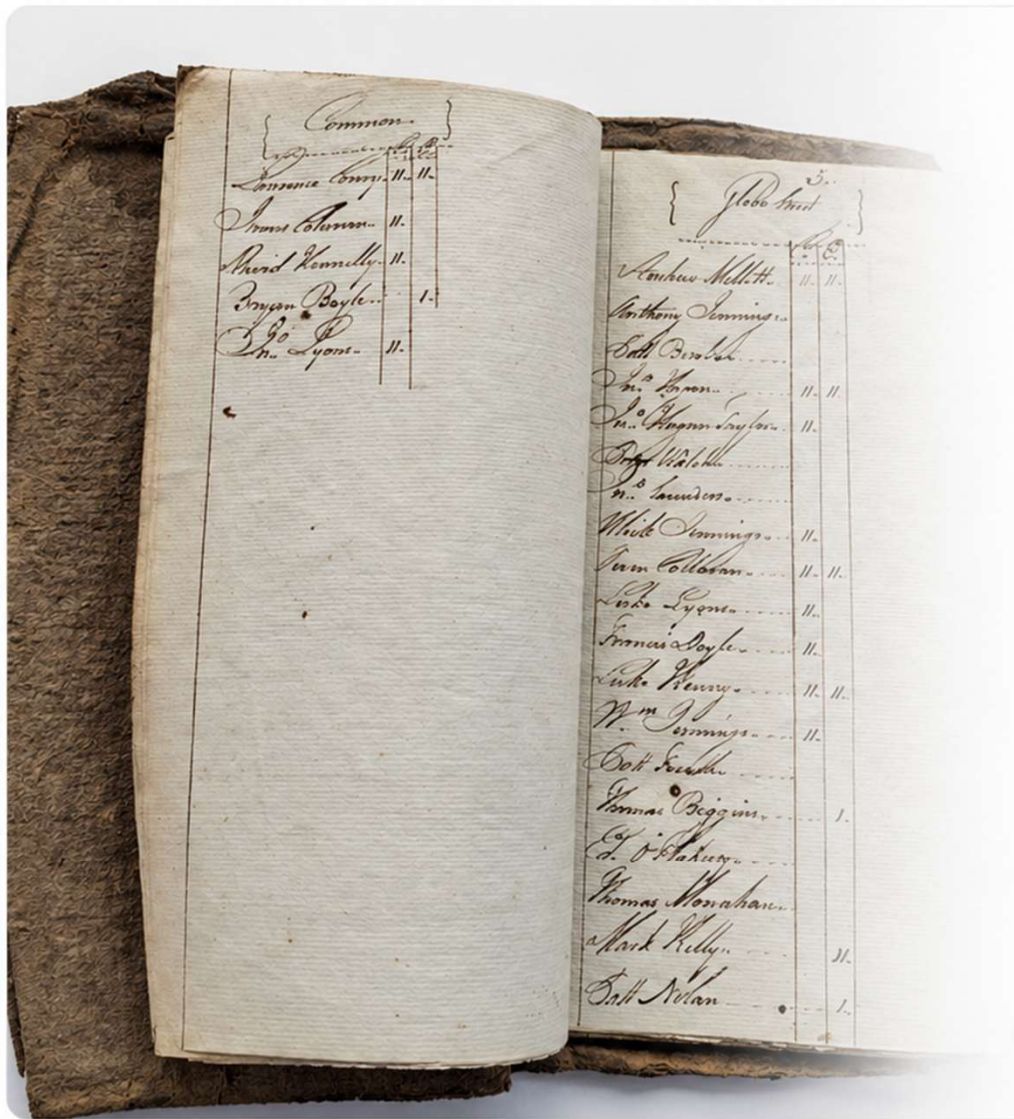 Common
Lawrence Conry 11 11
Coleman 11
Kennelly 11
Bryan Boyle 1
Jno Lyons 11
5
Globe Street
Andrew Mellett 11 11
Anthony Jennings
Patt
Jno 11 11
Jno Hagan Taylor 11
Walsh
Jno Saunders
Mick Jennings 11
Colloran 11 11
Luke Lyons 11
Francis Doyle 11
Luke Kenny 11 11
Wm Jennings 11
Patt
Thomas Biggins 1
Ed. O'Flaherty
Thomas Monahan
Mark Kelly 11
Patt Nolan 1